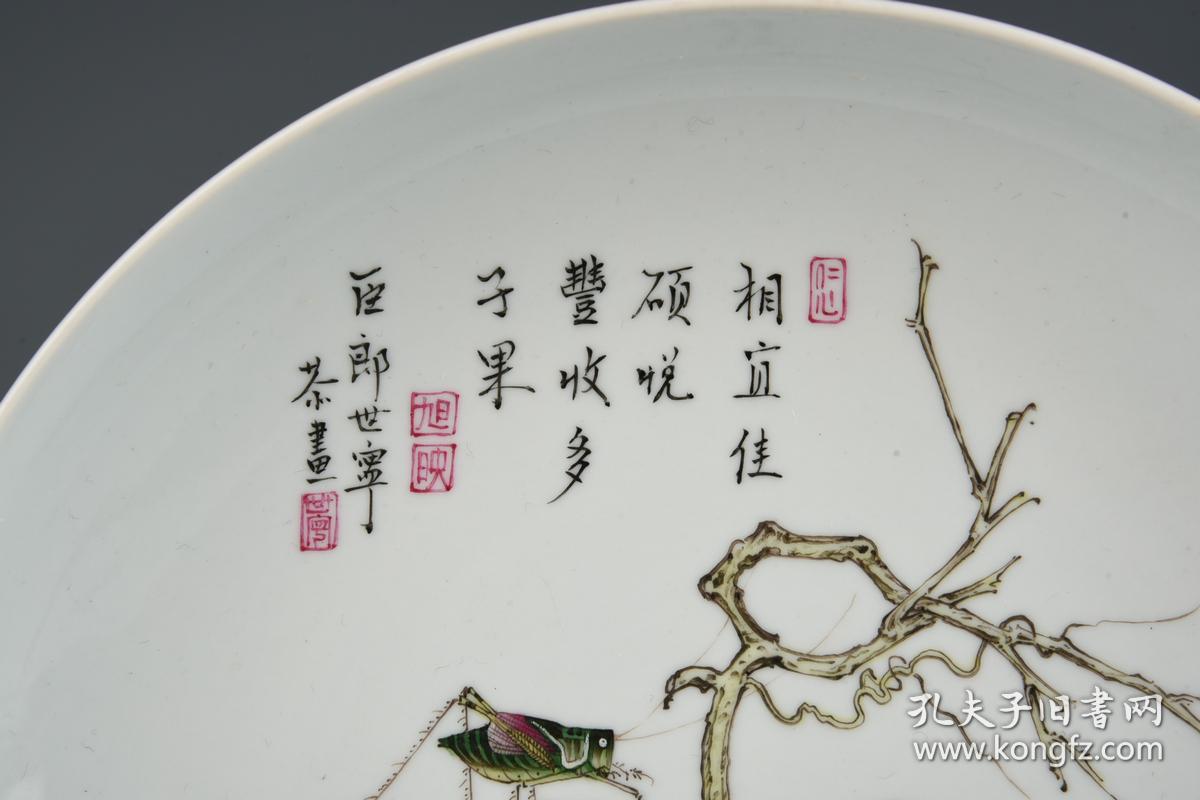 相宜佳
硕悦
豐收多
子果
旭
映
臣郎世寧
恭畫
世寧
孔夫子旧書网
www.kongfz.com